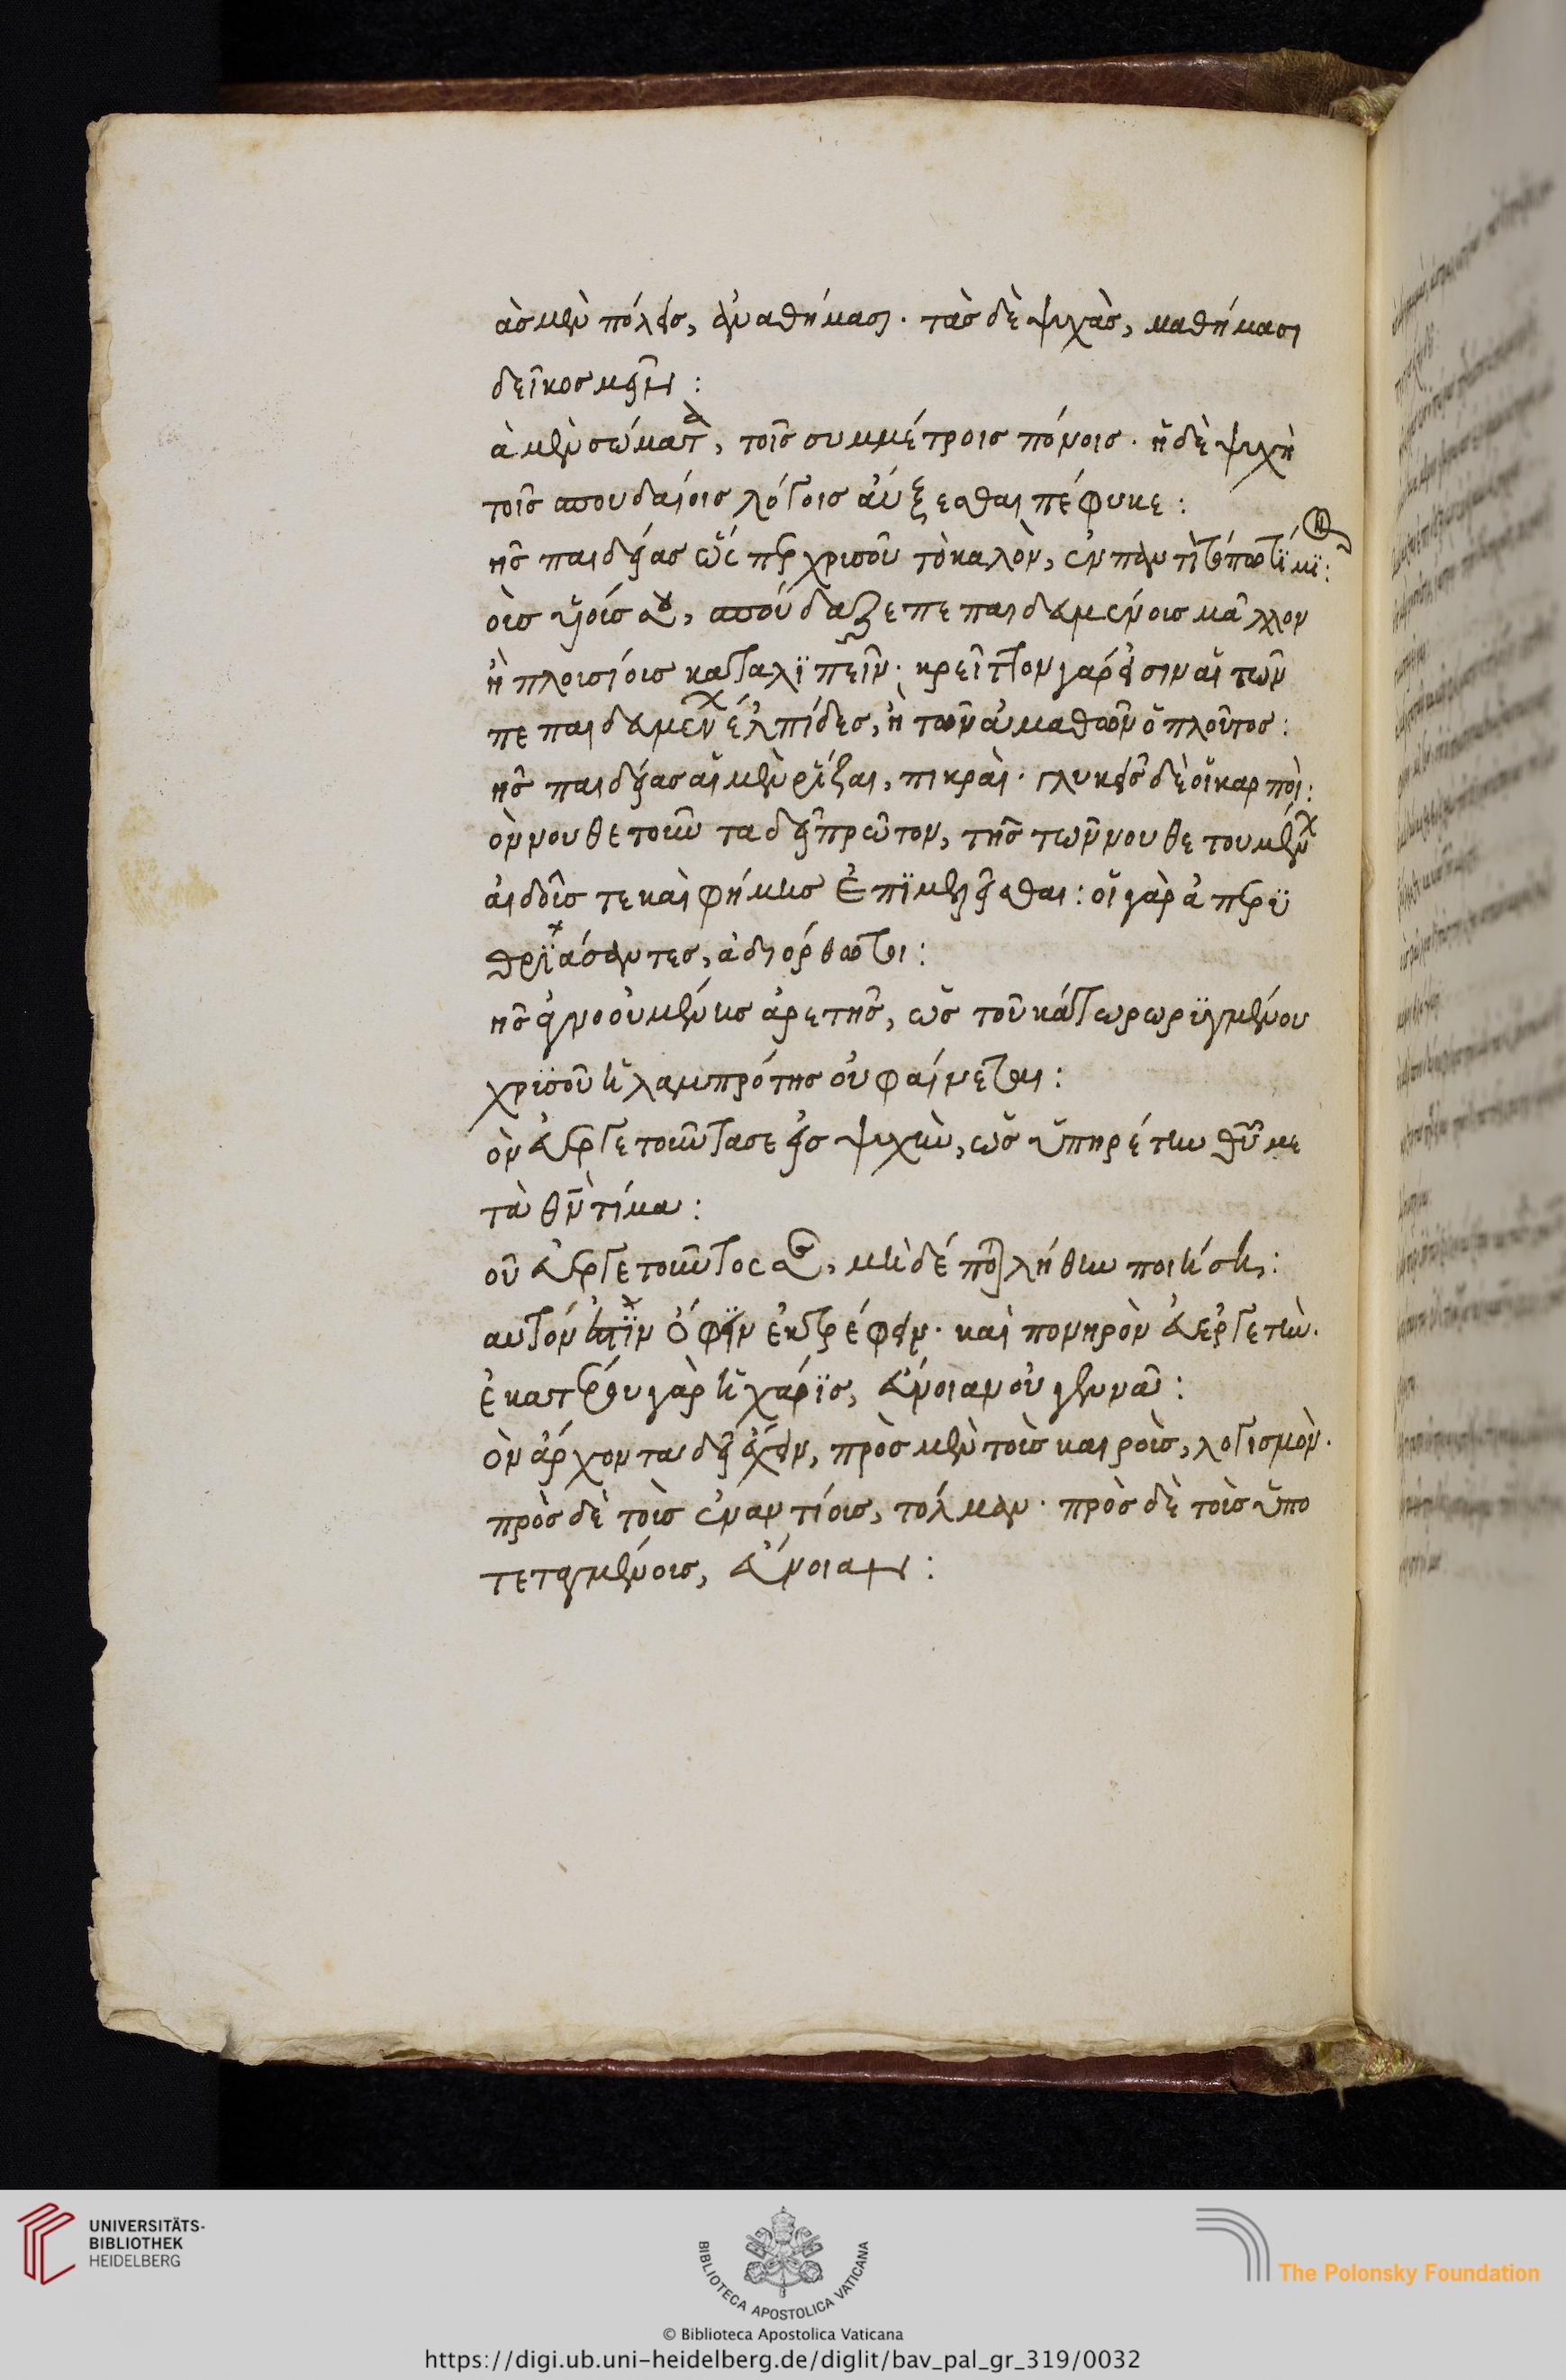 ὰς μὲν πόλεις, ἀναθήμασι· τὰς δὲ ψυχὰς, μαθήμασι
δεῖ κοσμεῖν :
ὰ μὲν σώματα, τοῖς συμμέτροις πόνοις· ἡ δὲ ψυχὴ
τοῖς σπουδαίοις λόγοις αὔξεσθαι πέφυκε :
ῆς παιδείας ὥσπερ χρυσοῦ τὸ καλὸν, ἐν παντὶ
οῖς υἱοῖς σου, σπούδαζε πεπαιδευμένοις μᾶλλον
ἢ πλουσίοις καταλιπεῖν· κρεῖττον γάρ εἰσιν αἱ τῶν
πεπαιδευμένων ἐλπίδες, ἢ τῶν ἀμαθῶν ὁ πλοῦτος :
ῆς παιδείας αἱ μὲν ῥίζαι, πικραὶ· γλυκεῖς δὲ οἱ καρποὶ :
ὸν νουθετοῦντα δεῖ πρῶτον, τῆς τῶν νουθετουμένων
αἰδοῦς τε καὶ φήμης ἐπιμελεῖσθαι : οἱ γὰρ ἀπερυ
θριάσαντες, ἀδιόρθωτοι :
ῆς ἀγνοουμένης ἀρετῆς, ὡς τοῦ κάτωρωρυγμένου
χρυσοῦ ἡ λαμπρότης οὐ φαίνεται :
ὸν εὐεργετοῦντά σε εἰς ψυχὴν, ὡς ὑπηρέτην θεοῦ με
τὰ θεὸν τίμα :
οῦ εὐεργετοῦντός σε, μηδέποτε λήθην ποιήσῃ :
αυτόν ἐστιν ὄφιν ἐκτρέφειν· καὶ πονηρὸν εὐεργετεῖν·
ἑκατέρου γὰρ ἡ χάρις, εὔνοιαν οὐ γεννᾶ :
ὸν ἄρχοντα δεῖ ἔχειν, πρὸς μὲν τοὺς καιροὺς, λογισμὸν·
πρὸς δὲ τοὺς ἐναντίους, τόλμαν· πρὸς δὲ τοὺς ὑπο
τεταγμένους, εὔνοιαν :
UNIVERSITÄTS-
BIBLIOTHEK
HEIDELBERG
BIBLIOTECA APOSTOLICA VATICANA
The Polonsky Foundation
© Biblioteca Apostolica Vaticana
https://digi.ub.uni-heidelberg.de/diglit/bav_pal_gr_319/0032